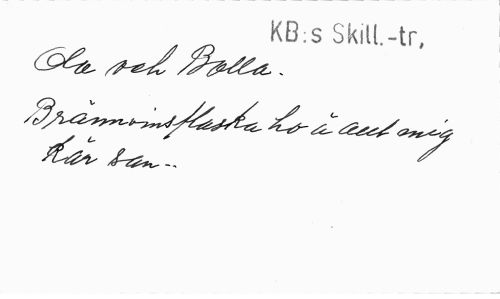 KB:s Skill.-tr,
Ola och Bolla.
Brännvinsflaska ho ä allt mig
kär san--